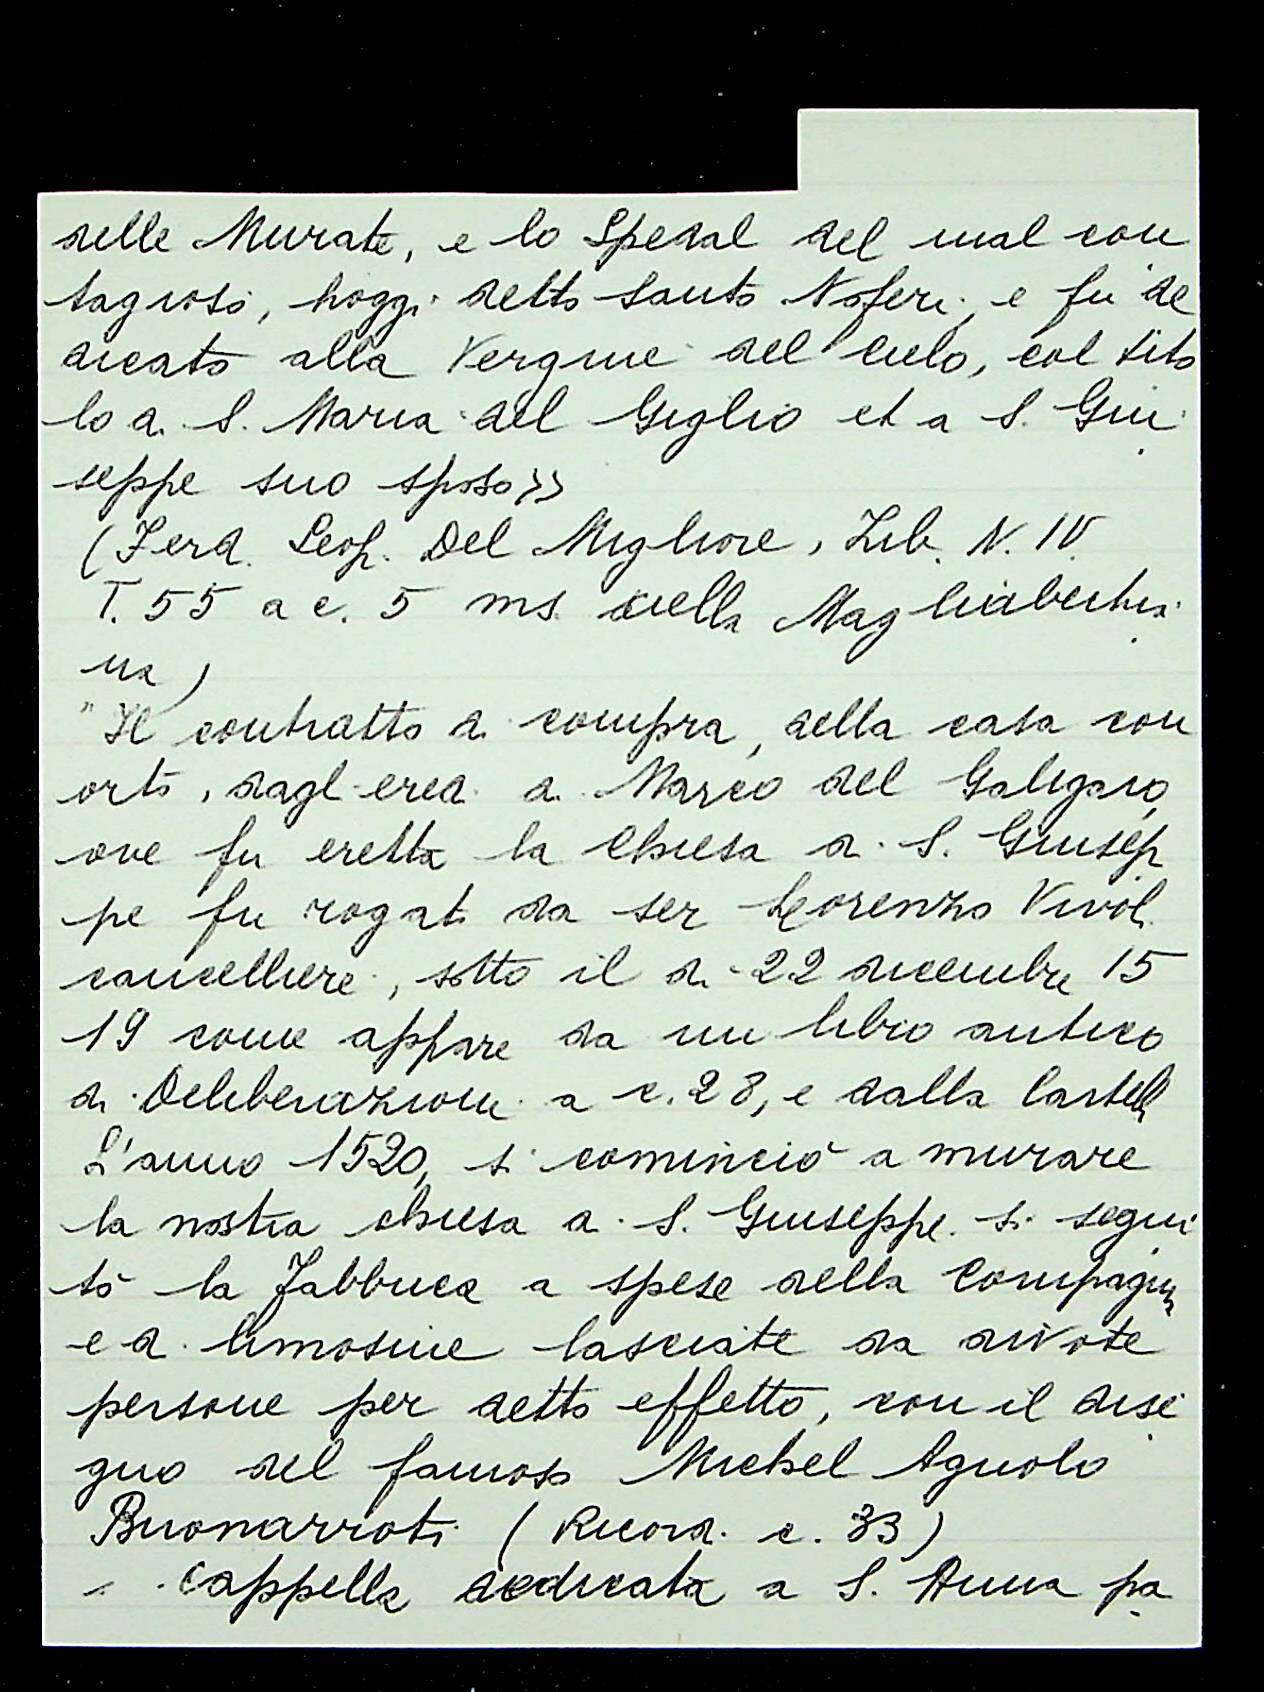 delle Murate, e lo Spedal del mal con
tagioso, hoggi detto Santo Noferi, e fu de
dicato alla Vergine del Cielo, col tito
lo di S. Maria del Giglio et a S. Giu
seppe suo sposo»
(Ferd. Leop. Del Migliore, Zib. N. IV
T. 55 a c. 5 ms. nella Magliabechia
na)
"Il contratto di compra, della casa con
orto, dagl eredi di Marco del Galigaio,
ove fu eretta la Chiesa di S. Giusep
pe fu rogato da ser Lorenzo Vivoli
cancelliere, sotto il di 22 dicembre 15
19 come appare da un libro antico
di Deliberazioni a c. 28, e dalla Cartella
L'anno 1520, si cominciò a murare
la nostra chiesa di S. Giuseppe. si segui
tò la Fabbrica a spese della Compagnia
e di limosine lasciate da divote
persone per detto effetto, con il dise
gno del famoso Michel Agnolo
Buonarroti (Ricord. c. 33)
cappella dedicata a S. Anna pa